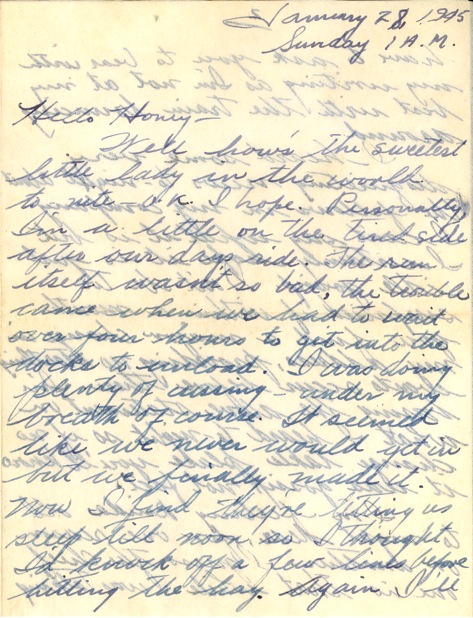 January 28, 1945
Sunday 1 A.M.
Hello Honey—
Well how's the sweetest
little lady in the world
to nite — o.k. I hope. Personally
I'm a little on the tired side
after our days ride. The run
itself wasn't so bad, the trouble
came when we had to wait
over four hours to get into the
docks to unload. I was doing
plenty of cussing — under my
breath of course. It seemed
like we never would get in
but we finally made it.
Now I find they're letting us
sleep till noon so I thought
I'd knock off a few lines before
hitting the hay. Again I'll